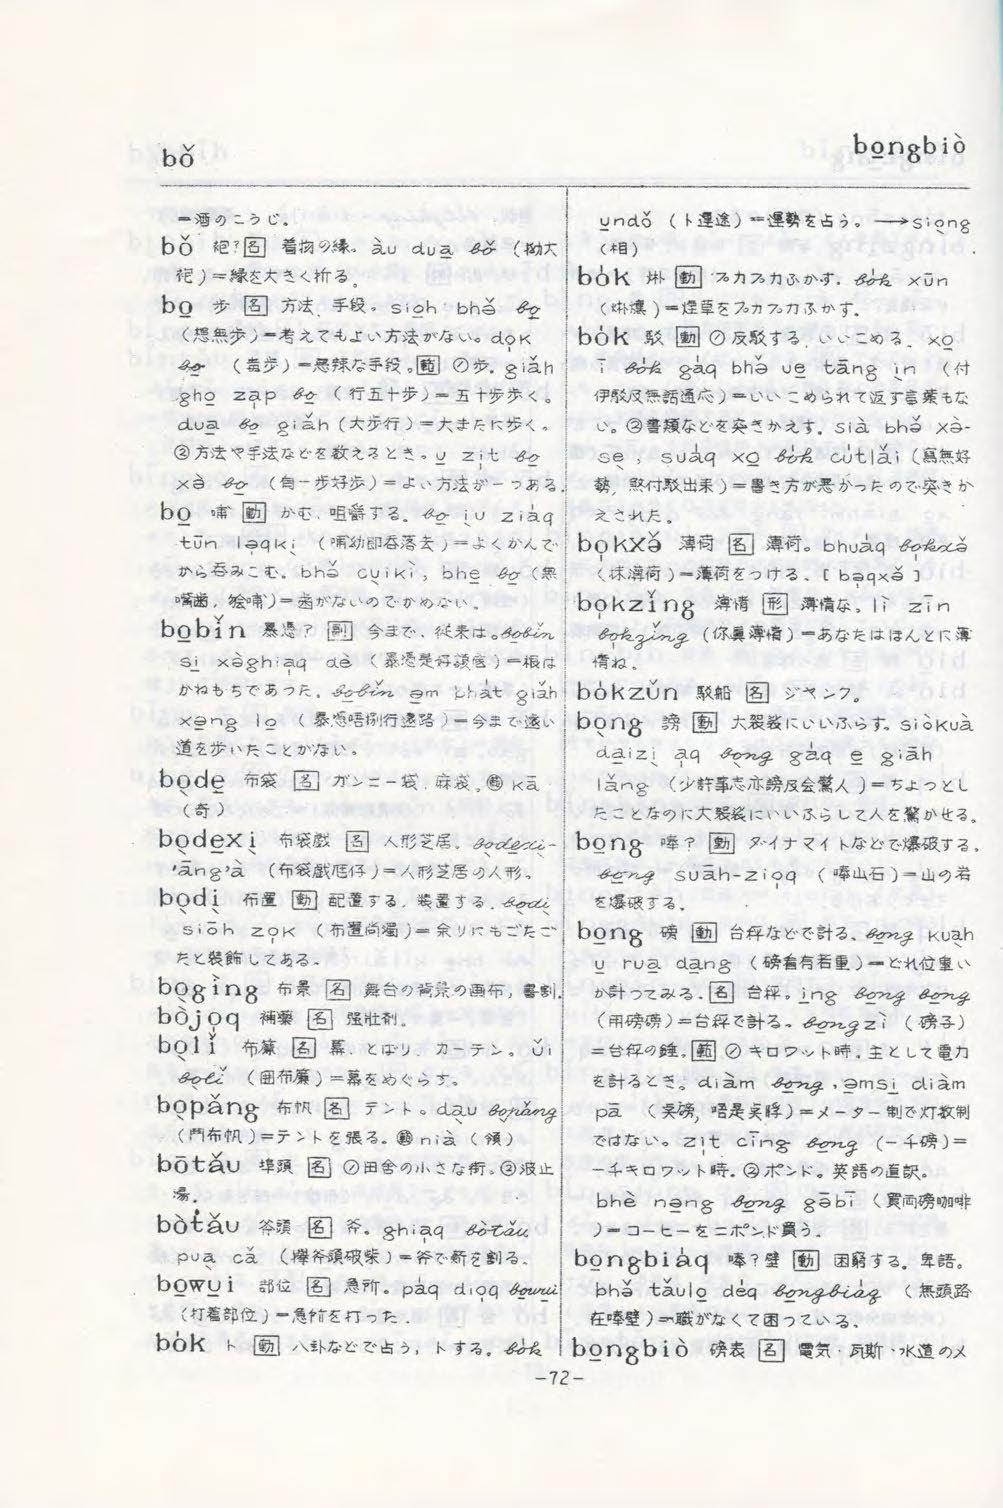 bǒ
bo̱ngbiò
=酒のこうじ。
bǒ 袍?[名] 着物の縁。àu dua̱ bǒ (拗大
袍)=縁を大きく折る。
bo̱ 步 [名] 方法,手段。siọh bhǎ bo̱
(想無步)=考えてもよい方法がない。dọk
bo̱ (毒步)=悪辣な手段。[範] ①步。giǎh
gho̱ za̍p bo̱ (行五十步)=五十步歩く。
dua̱ bo̱ giǎh (大步行)=大またに步く。
②方法や手法などを数えるとき。u̱ zi̍t bo̱
xà bo̱ (有一步好步)=よい方法が一つある。
bo̱ 哺 [動] かむ,咀嚼する。bo̱ iu ziàq
tūn lọqki (哺幼即吞落去)=よくかんで
から呑みこむ。bhǎ cụiki, bhe̱ bo̱ (無
嘴齒,𫣆哺)=歯がないのでかめない。
bo̱bǐn 暴憑? [副] 今まで,従来は。bo̱bǐn
si̱ xǎghiaq dè (暴憑是好額底)=根は
かねもちであった。bo̱bǐn əm bhàt giǎh
xəng lo̱ (暴憑唔捌行遠路)=今まで遠い
道を歩いたことがない。
bọde̱ 布袋 [名] ガンニー袋,麻袋。[数] kā
(奇)
bọde̱xi 布袋戯 [名] 人形芝居。bọde̱xi-
'āng'à (布袋戯尪仔)=人形芝居の人形。
bọdi 布置 [動] 配置する,装置する。bọdi
siōh zọk (布置尚濁)=余りにもごたご
たと裝飾してある。
bọgìng 布景 [名] 舞台の背景の画布,書割。
bòjọq 補藥 [名] 强壯剤。
bọlǐ 布簾 [名] 幕,とばり,カーテン。ǔi
bọlǐ (囲布簾)=幕をめぐらす。
bọpǎng 布帆 [名] テント。dạu bọpǎng
(鬥布帆)=テントを張る。[数] nià (領)
bōtǎu 埠頭 [名] ①田舎の小さな街。②波止
場。
bòtǎu 斧頭 [名] 斧。ghiạq bòtǎu
puạ cǎ (攑斧頭破柴)=斧で薪を割る。
bo̱wu̱i 部位 [名] 急所。pàq diọq bo̱wu̱i
(打着部位)=急所を打った。
bòk 卜 [動] 八卦などで占う,卜する。bòk
u̱ndǒ (卜運途)=運勢を占う。→siọng
(相)
bo̍k [動] プカプカふかす。bo̍k xūn
=煙草をプカプカふかす。
bo̍k 駁 [動] ①反駁する,いいこめる。xọ
ī bo̍k gàq bhǎ ue̱ tāng ịn (付
伊駁及無話通応)=いいこめられて返す言葉もな
い。②書類などを突きかえす。sià bhǎ xà-
sẹ, suàq xọ bo̍k cu̍tlǎi (寫無好
勢,煞付駁出来)=書き方が悪かったので突きか
えされた。
bo̍kxǎ 薄荷 [名] 薄荷。bhuàq bo̍kxǎ
(抹薄荷)=薄荷をつける。[ba̍qxǎ]
bo̍kzǐng 薄情 [形] 薄情な。lì zīn
bo̍kzǐng (你眞薄情)=あなたはほんとに薄
情ね。
bòkzǔn 駁船 [名] ジャンプ。
bọng 謗 [動] 大袈裟にいいふらす。siòkuà
da̱izi̱ a̱q bọng gàq e̱ giāh
lǎng (少許事志亦謗及会驚人)=ちょっとし
たことなのに大袈裟にいいふらして人を驚かせる。
bọng 嗙? [動] ダイナマイトなどで爆破する。
bọng suāh-ziọq (嗙山石)=山の岩
を爆破する。
bo̱ng 磅 [動] 台秤などで計る。bo̱ng kuạh
u̱ rua̱ da̱ng (磅看有若重)=どれ位重い
か計ってみる。[名] 台秤。i̱ng bo̱ng bo̱ng
(用磅磅)=台秤で計る。bo̱ngzì (磅子)
=台秤の錘。[範] ①キロワット時。主として電力
を計るとき。diàm bo̱ng, əmsi̱ diàm
pā (実磅,唔是実脬)=メーター制で灯数制
ではない。zi̍t cīng bo̱ng (一千磅)=
一千キロワット時。②ポンド。英語の直訳。
bhè nəng bo̱ng gābī (買両磅咖啡
)=コーヒーをニポンド買う。
bo̱ngbiàq 嗙?壁 [動] 困窮する。卑語。
bhǎ tǎulo̱ deq bo̱ngbiàq (無頭路
在嗙壁)=職がなくて困っている。
bo̱ngbiò 磅表 [名] 電気·瓦斯·水道のメ
-72-